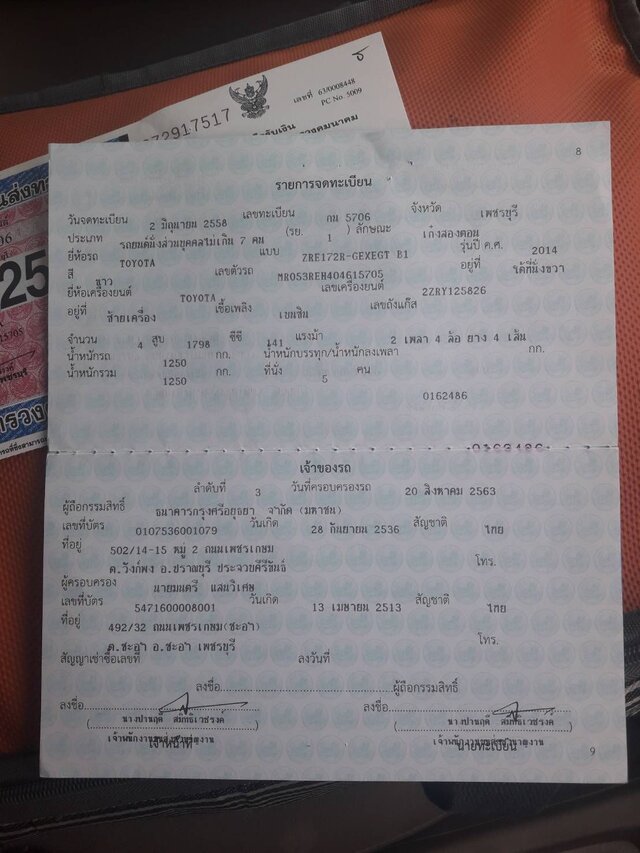 ธ
เลขที่ 63/0008448
PC No. 5009
72917517
25
15705
8
รายการจดทะเบียน
วันจดทะเบียน 2 มิถุนายน 2558 เลขทะเบียน กน 5706 จังหวัด เพชรบุรี
ประเภท รถยนต์นั่งส่วนบุคคลไม่เกิน 7 คน (รย. 1 ) ลักษณะ เก๋งสองตอน
ยี่ห้อรถ TOYOTA แบบ ZRE172R-GEXEGT B1 รุ่นปี ค.ศ. 2014
สี ขาว เลขตัวรถ MR053REH404615705 อยู่ที่ ใต้ที่นั่งขวา
ยี่ห้อเครื่องยนต์ TOYOTA เลขเครื่องยนต์ 2ZRY125826
อยู่ที่ ซ้ายเครื่อง เชื้อเพลิง เบนซิน เลขถังแก๊ส
จำนวน 4 สูบ 1798 ซีซี 141 แรงม้า 2 เพลา 4 ล้อ ยาง 4 เส้น
น้ำหนักรถ 1250 กก. น้ำหนักบรรทุก/น้ำหนักลงเพลา กก.
น้ำหนักรวม 1250 กก. ที่นั่ง 5 คน
0162486
เจ้าของรถ
ลำดับที่ 3 วันที่ครอบครองรถ 20 สิงหาคม 2563
ผู้ถือกรรมสิทธิ์ ธนาคารกรุงศรีอยุธยา จำกัด (มหาชน)
เลขที่บัตร 0107536001079 วันเกิด 28 กันยายน 2536 สัญชาติ ไทย
ที่อยู่ 502/14-15 หมู่ 2 ถนนเพชรเกษม
ต.วังก์พง อ.ปราณบุรี ประจวบคีรีขันธ์ โทร.
ผู้ครอบครอง นายมนตรี แสนวิเศษ
เลขที่บัตร 5471600008001 วันเกิด 13 เมษายน 2513 สัญชาติ ไทย
ที่อยู่ 492/32 ถนนเพชรเกษม(ชะอำ)
ต.ชะอำ อ.ชะอำ เพชรบุรี โทร.
สัญญาเช่าซื้อเลขที่ ลงวันที่
ลงชื่อ ผู้ถือกรรมสิทธิ์
ลงชื่อ ลงชื่อ
เจ้าหน้าที่ นายทะเบียน
9